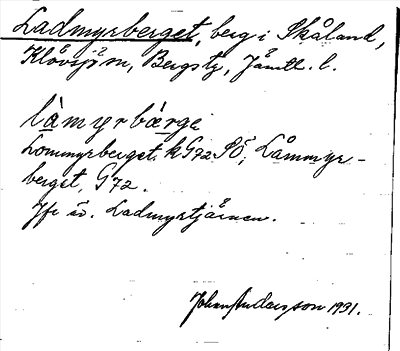 Ladmyrberget, berg i Skåland,
Klövsjö sn, Bergs tg, Jämtl. l.
làmyrbærge
Lommyrberget kG72 SÖ; Låmmyr-
berget, G72.
Jfr öv. Ladmyrtjärnen.
Johan Andersson 1931.